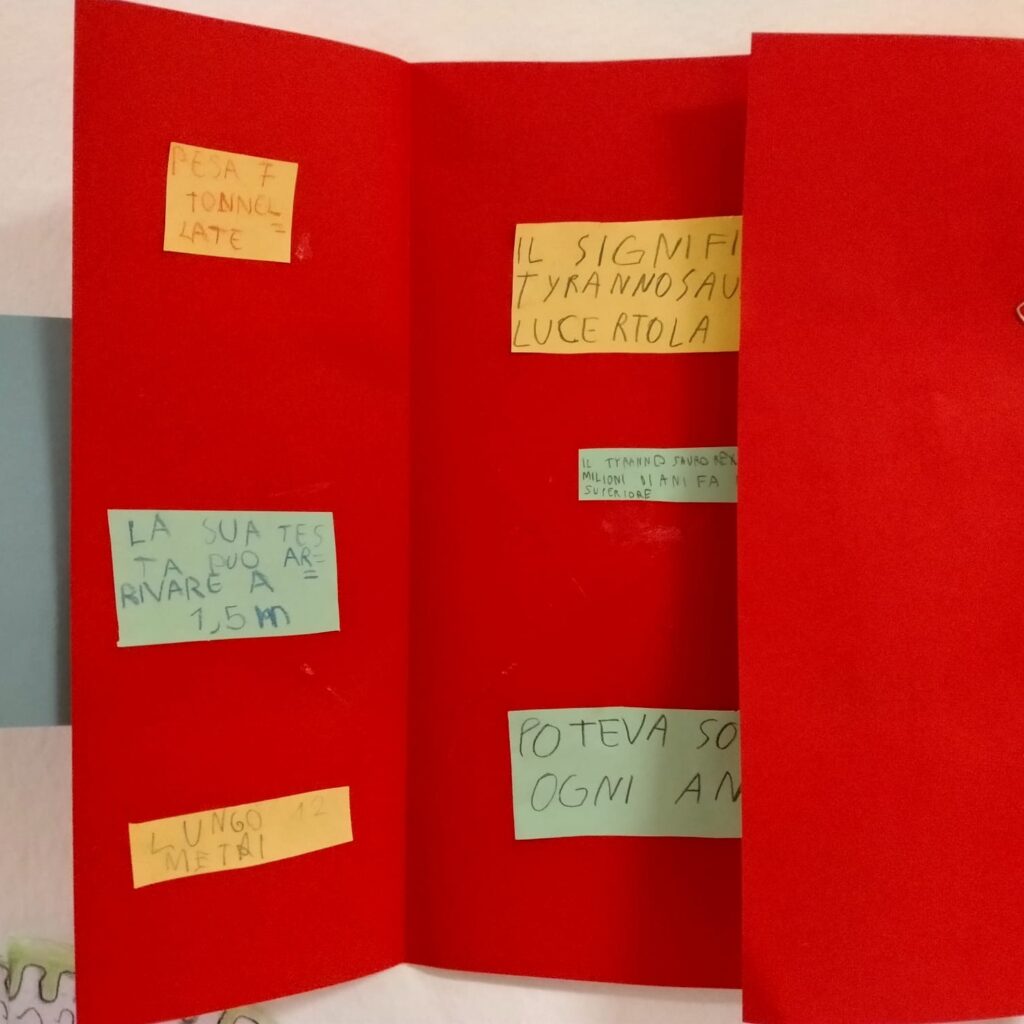 PESA 7
TONNEL=
LATE
LA SUA TES
TA PUO AR=
RIVARE A
1,5 m
LUNGO 12
METRI
IL SIGNIFI
TYRANNOSAU
LUCERTOLA
IL TYRANNOSAURO REX
MILIONI DI ANI FA
SUPERIORE
POTEVA SO
OGNI AN